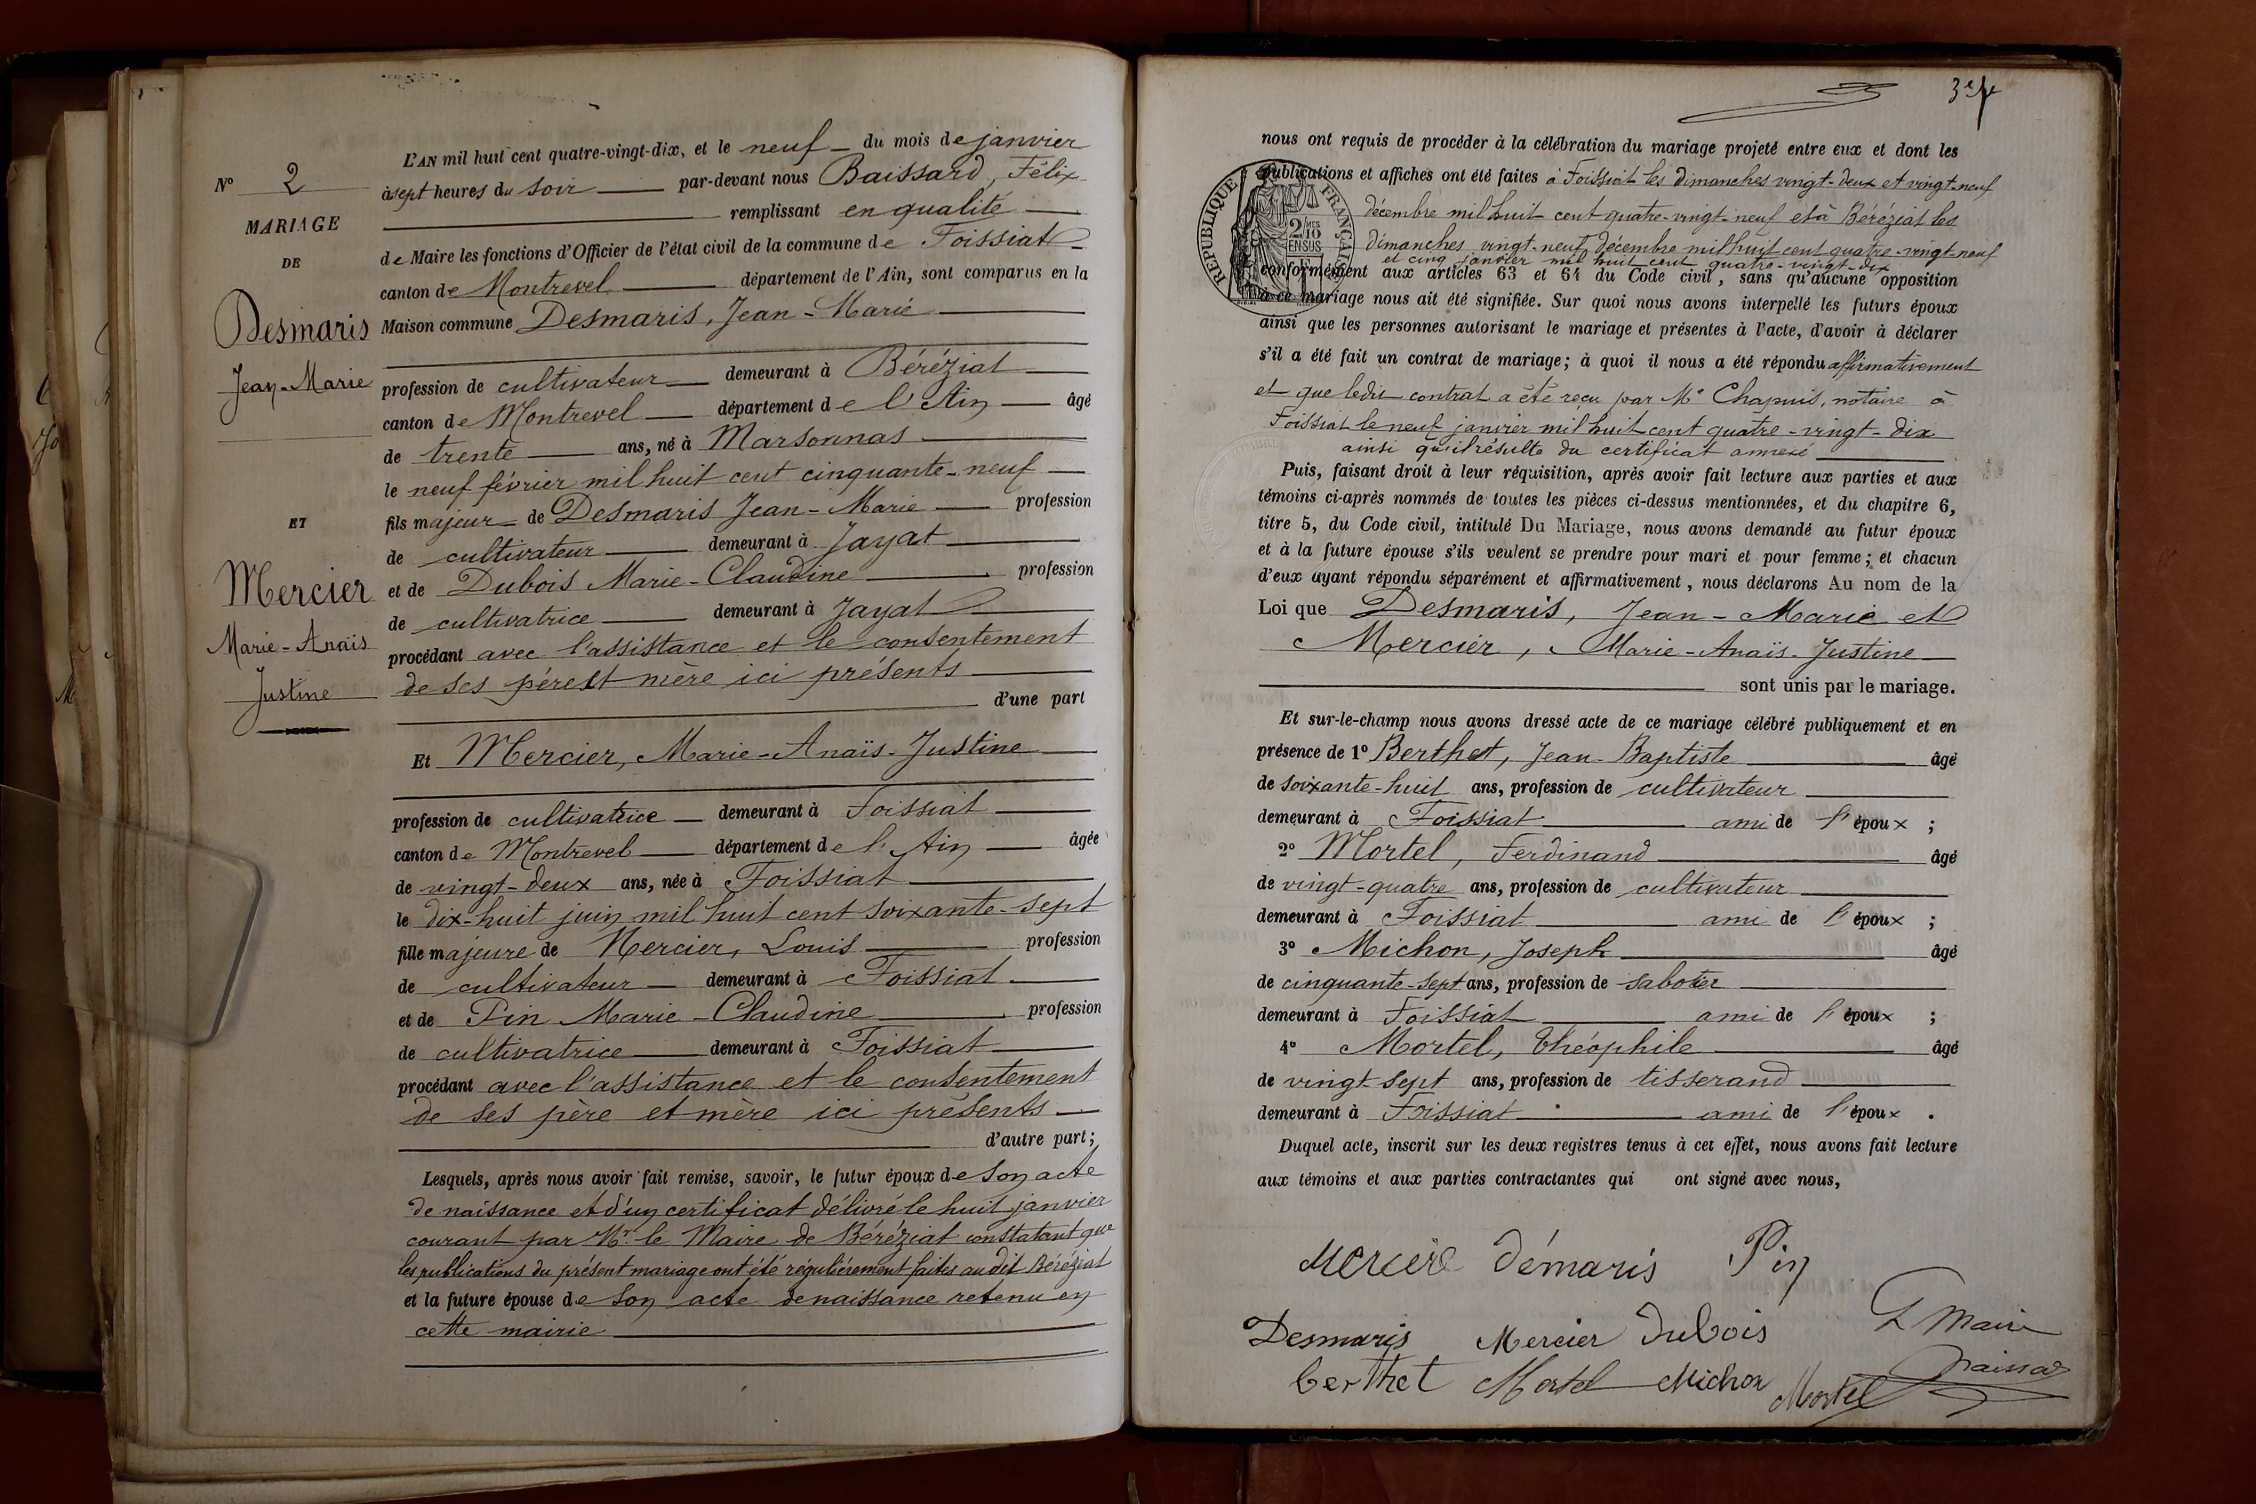 N° 2
MARIAGE
DE
Desmaris
Jean-Marie
ET
Mercier
Marie-Anaïs
Justine
L'AN mil huit cent quatre-vingt-dix, et le neuf du mois de janvier
à sept heures du soir par-devant nous Baissard, Félix
remplissant en qualité
de Maire les fonctions d'Officier de l'état civil de la commune de Foissiat
canton de Montrevel département de l'Ain, sont comparus en la
Maison commune Desmaris, Jean-Marie
profession de cultivateur demeurant à Béréziat
canton de Montrevel département de l'Ain âgé
de trente ans, né à Marsonnas
le neuf février mil huit cent cinquante-neuf
fils majeur de Desmaris Jean-Marie profession
de cultivateur demeurant à Jayat
et de Dubois Marie-Claudine profession
de cultivatrice demeurant à Jayat
procédant avec l'assistance et le consentement
de ses père et mère ici présents
d'une part
Et Mercier, Marie-Anaïs-Justine
profession de cultivatrice demeurant à Foissiat
canton de Montrevel département de l'Ain âgée
de vingt-deux ans, née à Foissiat
le dix-huit juin mil huit cent soixante-sept
fille majeure de Mercier, Louis profession
de cultivateur demeurant à Foissiat
et de Pin Marie-Claudine profession
de cultivatrice demeurant à Foissiat
procédant avec l'assistance et le consentement
de ses père et mère ici présents
d'autre part;
Lesquels, après nous avoir fait remise, savoir, le futur époux de son acte
de naissance et d'un certificat délivré le huit janvier
courant par Mr. le Maire de Béréziat constatant que
les publications du présent mariage ont été régulièrement faites au dit Béréziat
et la future épouse de son acte de naissance retenu en
cette mairie
nous ont requis de procéder à la célébration du mariage projeté entre eux et dont les
publications et affiches ont été faites à Foissiat les dimanches vingt-deux et vingt-neuf
décembre mil huit cent quatre-vingt-neuf et à Béréziat les
dimanches vingt-neuf décembre mil huit cent quatre-vingt-neuf
et cinq janvier mil huit cent quatre-vingt-dix
conformément aux articles 63 et 64 du Code civil, sans qu'aucune opposition
à ce mariage nous ait été signifiée. Sur quoi nous avons interpellé les futurs époux
ainsi que les personnes autorisant le mariage et présentes à l'acte, d'avoir à déclarer
s'il a été fait un contrat de mariage; à quoi il nous a été répondu affirmativement
et que ledit contrat a été reçu par Me Chapuis, notaire à
Foissiat le neuf janvier mil huit cent quatre-vingt-dix
ainsi qu'il résulte du certificat annexé
Puis, faisant droit à leur réquisition, après avoir fait lecture aux parties et aux
témoins ci-après nommés de toutes les pièces ci-dessus mentionnées, et du chapitre 6,
titre 5, du Code civil, intitulé Du Mariage, nous avons demandé au futur époux
et à la future épouse s'ils veulent se prendre pour mari et pour femme; et chacun
d'eux ayant répondu séparément et affirmativement, nous déclarons Au nom de la
Loi que Desmaris, Jean-Marie et
Mercier, Marie-Anaïs-Justine
sont unis par le mariage.
Et sur-le-champ nous avons dressé acte de ce mariage célébré publiquement et en
présence de 1° Berthet, Jean-Baptiste âgé
de soixante-huit ans, profession de cultivateur
demeurant à Foissiat ami de l'époux ;
2° Mortel, Ferdinand âgé
de vingt-quatre ans, profession de cultivateur
demeurant à Foissiat ami de l'époux ;
3° Michon, Joseph âgé
de cinquante-sept ans, profession de sabotier
demeurant à Foissiat ami de l'époux ;
4° Mortel, Théophile âgé
de vingt sept ans, profession de tisserand
demeurant à Foissiat ami de l'époux .
Duquel acte, inscrit sur les deux registres tenus à cet effet, nous avons fait lecture
aux témoins et aux parties contractantes qui ont signé avec nous,
Mercier Démaris Pin
Desmaris Mercier Dubois Le Maire
Berthet Mortel Michon Mortel Baissard
RÉPUBLIQUE FRANÇAISE
2/10 MES
EN SUS